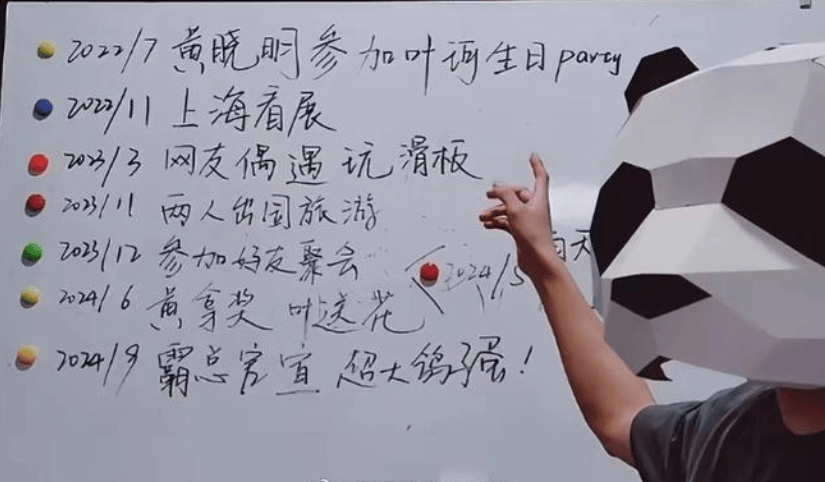 2022/7 黄晓明参加叶珂生日party
2022/11 上海看展
2023/3 网友偶遇玩滑板
2023/11 两人出国旅游
2023/12 参加好友聚会
2024/5 白天
2024/6 黄拿奖 叶送花
2024/9 霸总官宣 超大鸽子蛋!